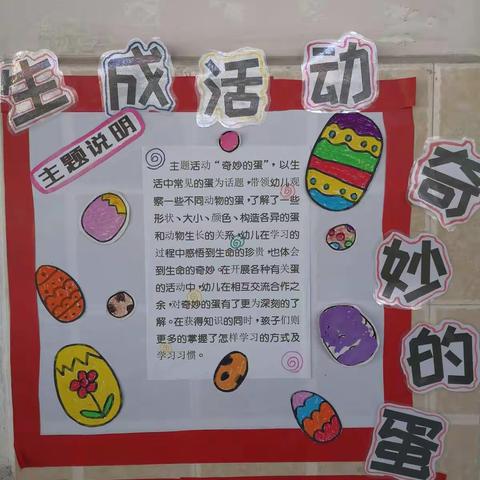 生成活动
奇妙的蛋
主题说明
主题活动“奇妙的蛋”，以生
活中常见的蛋为话题，带领幼儿观
察一些不同动物的蛋，了解了一些
形状、大小、颜色、构造各异的蛋
和动物生长的关系，幼儿在学习的
过程中感悟到生命的珍贵，也体会
到生命的奇妙。在开展各种有关蛋
的活动中，幼儿在相互交流合作之
余，对奇妙的蛋有了更为深刻的了
解。在获得知识的同时，孩子们则
更多的掌握了怎样学习的方式及
学习习惯。